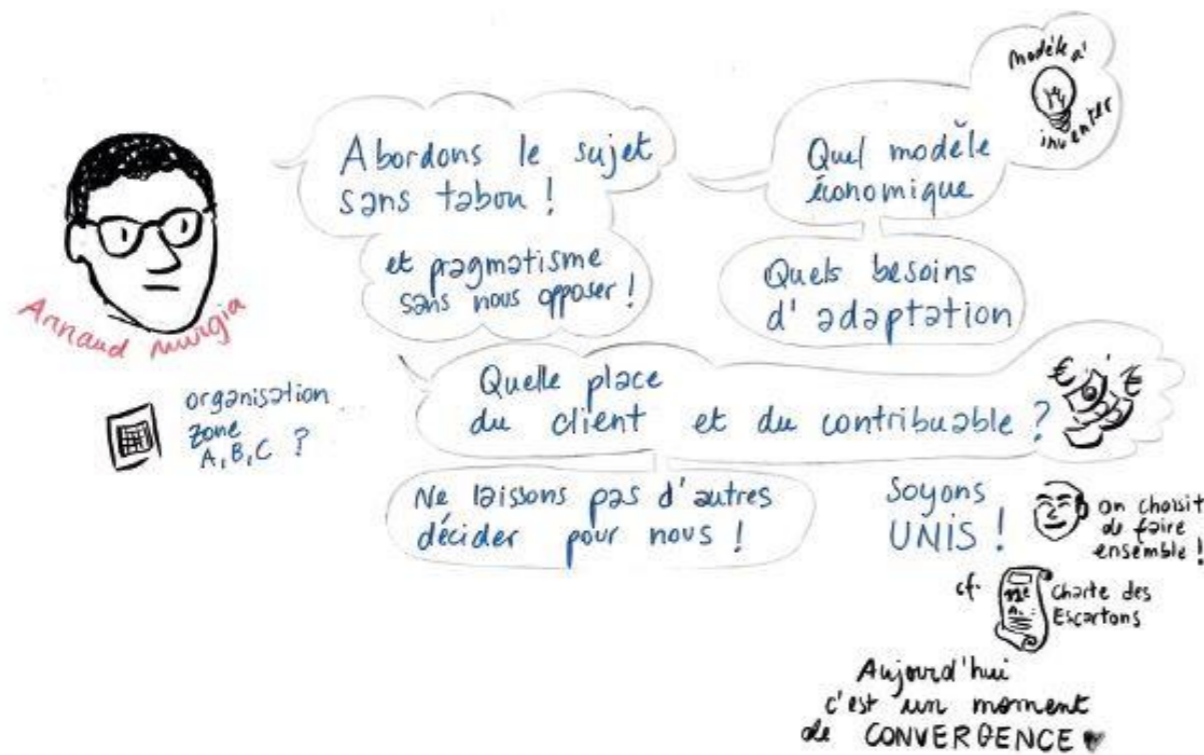 Arnaud Murgia
organisation
zone
A, B, C ?
Abordons le sujet
sans tabou !
et pragmatisme
sans nous opposer !
Quel modèle
économique
modèle à
inventer
Quels besoins
d'adaptation
Quelle place
du client et du contribuable ?
€ €
Ne laissons pas d'autres
décider pour nous !
Soyons
UNIS !
on choisit
de faire
ensemble !
cf.
Charte des
Escartons
Aujourd'hui
c'est un moment
de CONVERGENCE